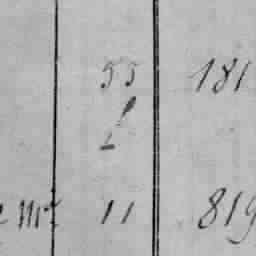 55 181
mr 11 819